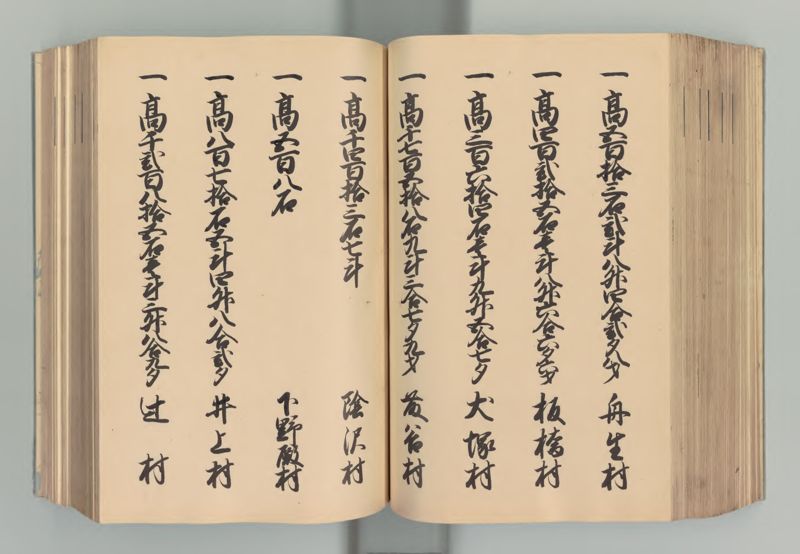 一 高五百拾三石弐斗八升四合弐夕八才 舟生村
一 高四百弐拾五石壱斗八升六合六夕七才 板橋村
一 高三百六拾四石壱斗九升五合七夕 犬塚村
一 高千七百五拾八石九斗三合七夕九才 芦谷村
一 高千四百拾三石七斗 陰沢村
一 高五百八石 下野殿村
一 高八百七拾石五斗四升八合弐夕 井上村
一 高千弐百八拾五石壱斗三升八合九夕 辻村